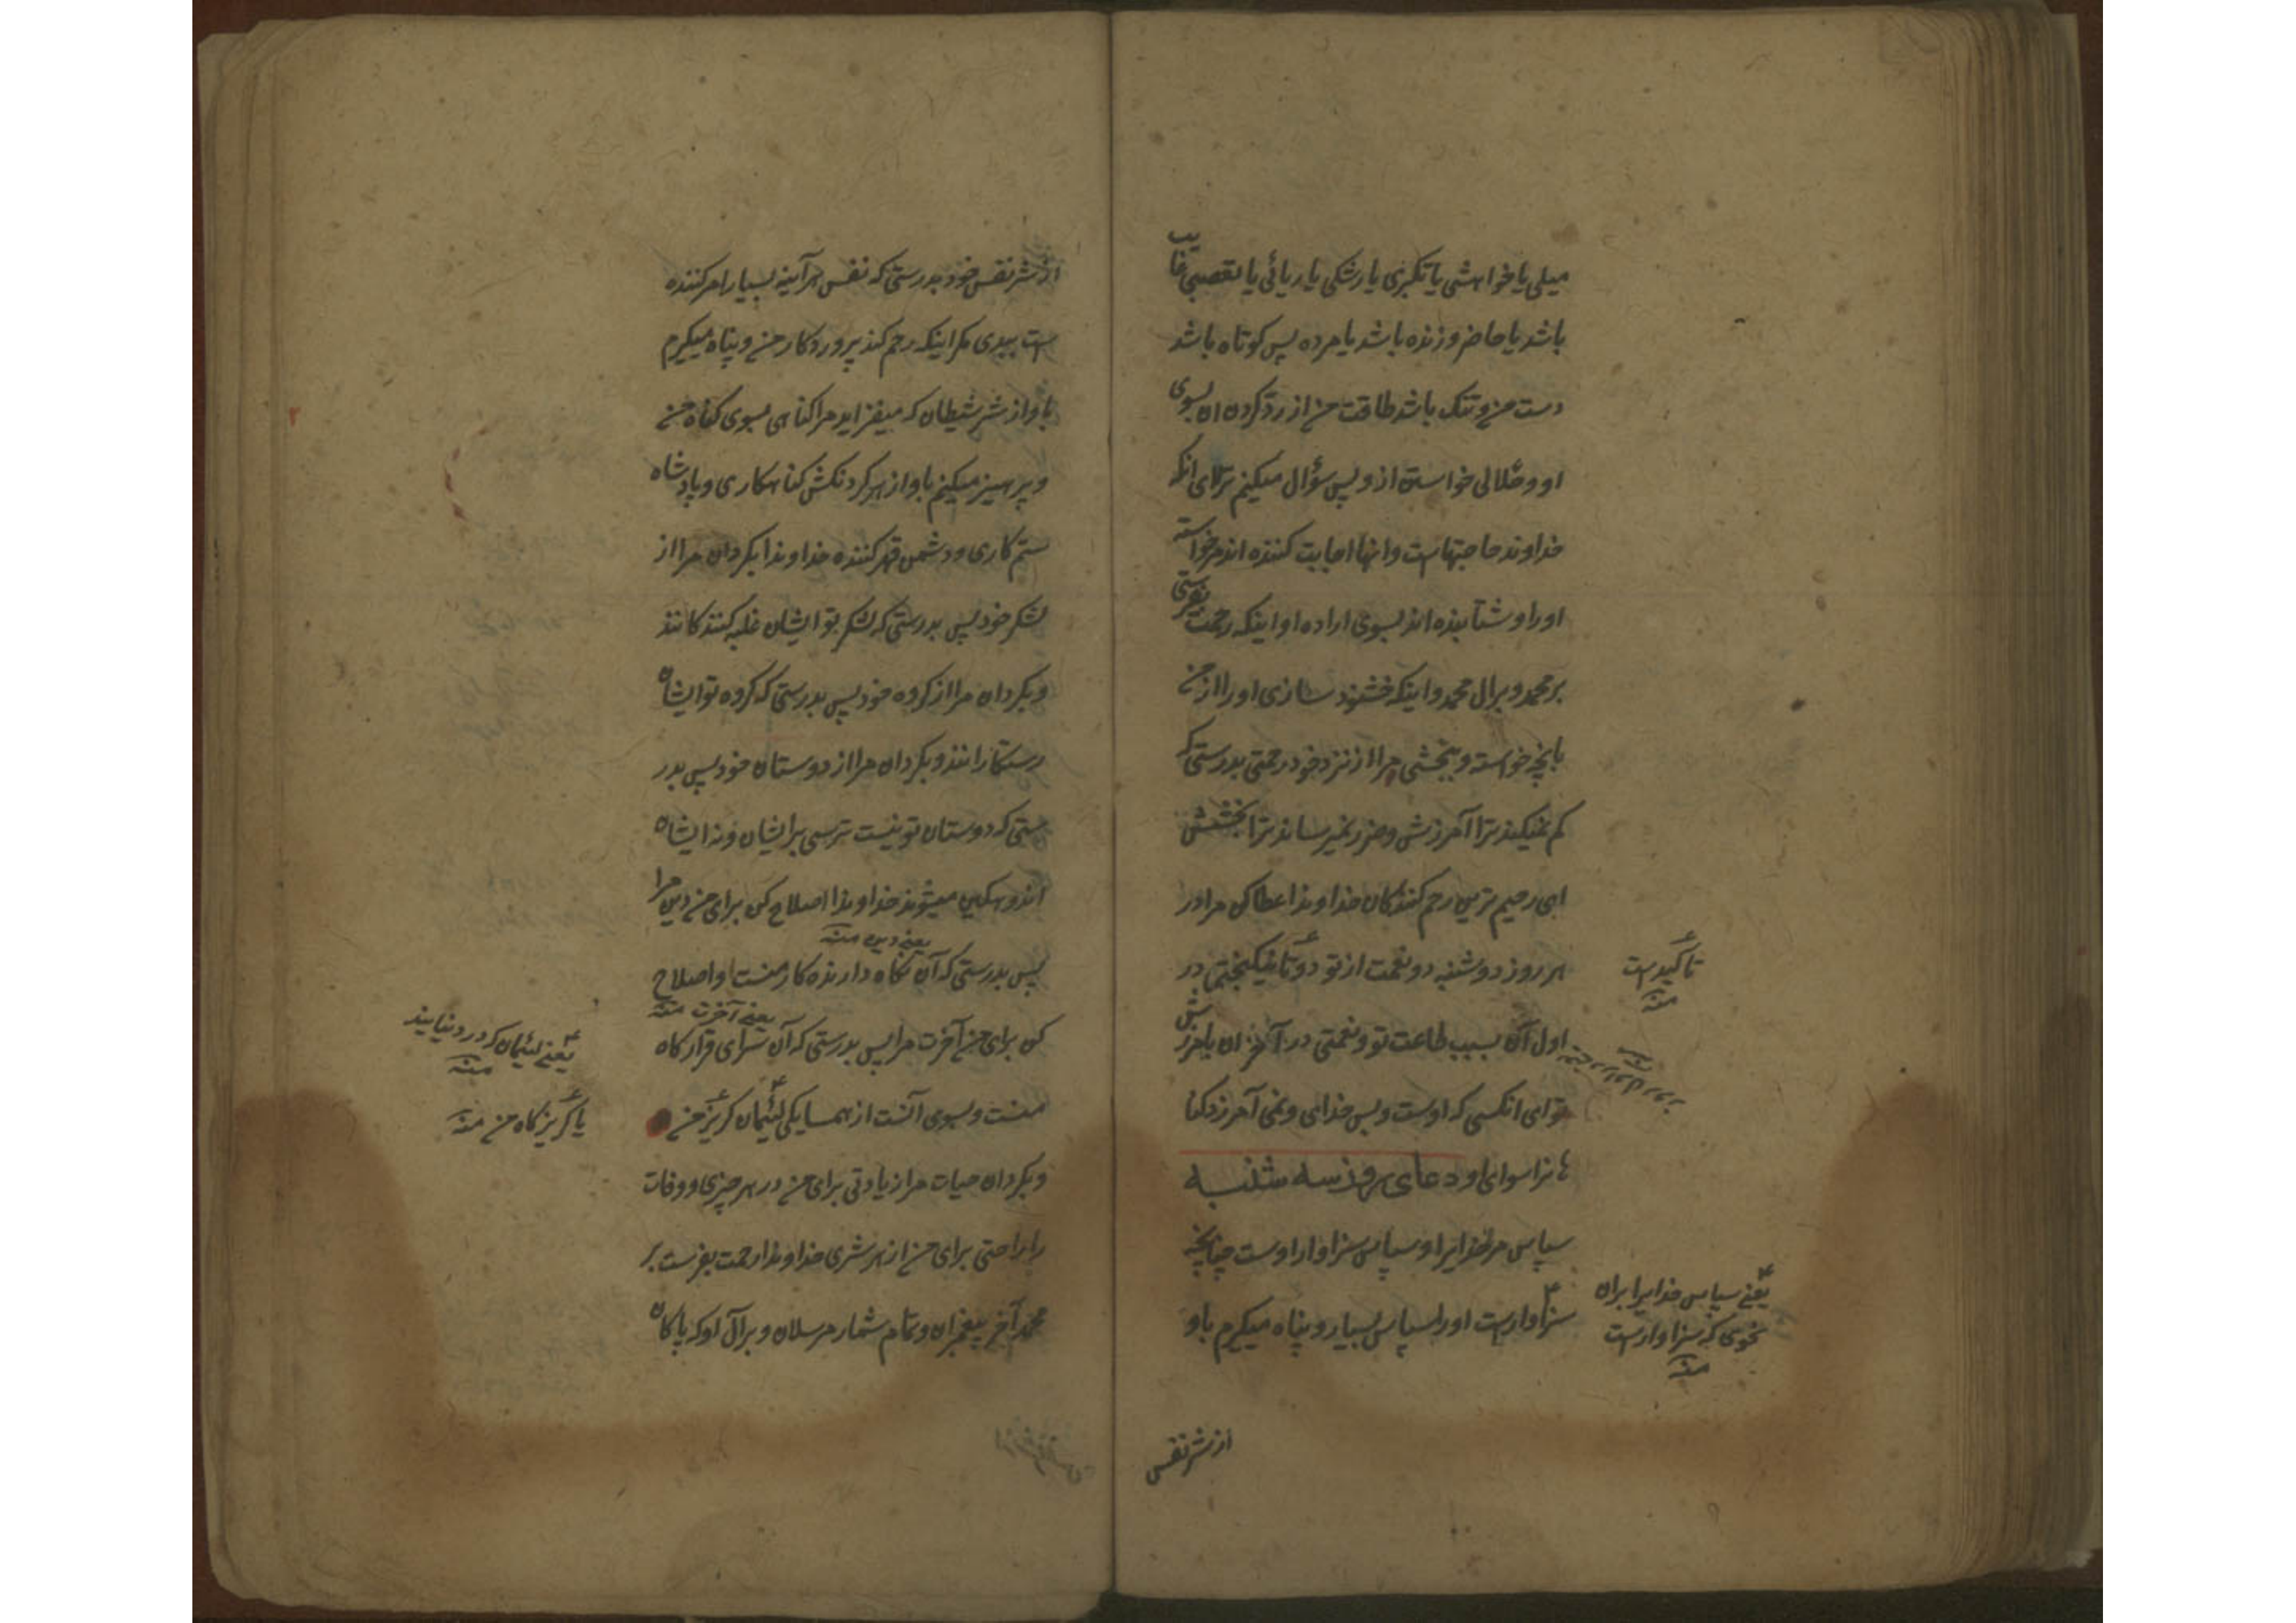 میلی یا خواهشی یا تکبری یا رشکی یا ریائی یا تعصبی غایب
باشد یا حاضر و زنده باشد یا مرده پس کوتاه باشد
دست من و تنک باشد طاقت من از رد کردن ان بسوی
او و حلالی خواستن از و پس سؤال میکنم ترا ای انکه
خداوند حاجتهاست و انها اجابت کننده اند مر خواسته
اورا و شتابنده اند بسوی اراده او اینکه رحمت بفرستی
بر محمد و بر ال محمد و اینکه خشنود سازی او را از من
بانچه خواسته و ببخشی مرا از نزد خود رحمتی بدرستی که
کم نمیکند ترا آمرزش و ضرر نمیرساند ترا بخشش
ای رحیم ترین رحم کنندکان خداوندا عطا کن مرا در
هر روز دوشنبه دو نعمت از تو دوتا نیکبختی در
اول آن بسبب طاعت تو و نعمتی در آخر ان بامرزش
تو ای انکسی که اوست و بس خدای و نمی آمرزد کنا
ها نرا سوای او دعای روز سه شنبه
سپاس مر خدایرا و سپاس سزاوار اوست چنانچه
سزاوارست اورا سپاس بسیار و پناه میکیرم باو
تاکیدست
منه
یعنی سپاس خدایرا بران
نحوی که سزاوارست
منه
از شر نفس
از شر نفس خود بدرستی که نفس هرآینه بسیار امر کننده
ست ببدی مکر اینکه رحم کند پروردکار من و پناه میکیرم
باو از شر شیطان که میفزاید مرا کناهی بسوی کناه من
و پرهیز میکنم باو از هر کردنکش کناهکاری و پادشاه
ستم کاری و دشمن قهر کننده خداوندا بکردان مرا از
لشکر خود پس بدرستی که لشکر تو ایشان غلبه کنندکانند
و بکردان مرا از کروه خود پس بدرستی که کروه تو ایشان
رستکارانند و بکردان مرا از دوستان خود پس بدر
ستی که دوستان تو نیست ترسی بر ایشان و نه ایشان
اندوهکین میشوند خداوندا اصلاح کن برای من دین مرا
یعنی دین منه
پس بدرستی که آن نکاه دارنده کار منست و اصلاح
یعنی آخرت منه
کن برای من آخرت مرا پس بدرستی که آن سرای قرار کاه
منست و بسوی آنست از همسایکی لئیمان کریز من
و بکردان حیات مرا زیادتی برای من در هر چیزی و وفات
را راحتی برای من از هر شری خداوندا رحمت بفرست بر
محمد آخر پیغمبران و تمام شمار مرسلان و بر آل او که پاکان
یعنی لئیمان که در دنیایند
منه
یا کریزکاه من منه